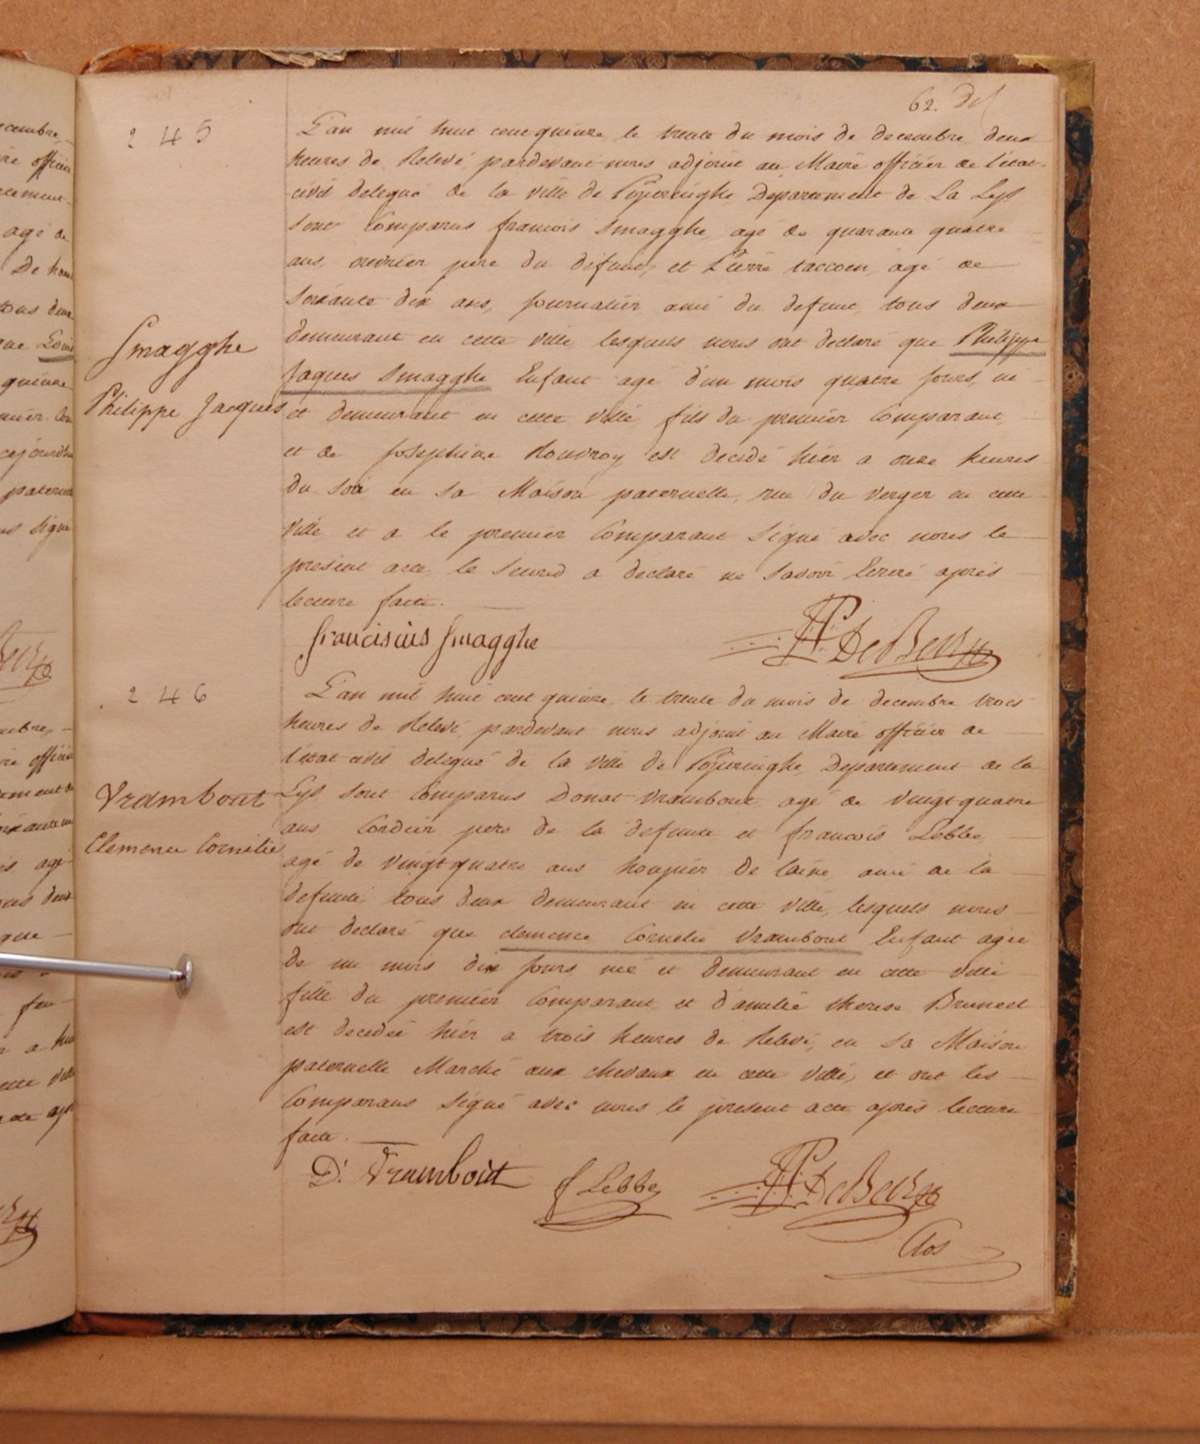 62.
245
L'an mil huit cent quinze, le trente du mois de decembre deux
heures de Relevé, pardevant nous adjoint au Maire officier de l'etat-
civil delegué de la ville de Poperinghe Departement de La Lys
sont Comparus francois Smagghe, agé de quarante quatre
ans, ouvrier pere du defunt, et Pierre taccoen, agé de
soixante dix ans, journalier ami du defunt, tous deux
demeurant en cette ville lesquels nous ont declaré que Philippe
Jaques Smagghe Enfant agé d'un mois quatre jours, né
et demeurant en cette ville, fils du premier Comparant,
et de Josephine Houvroy est decedé hier a onze heures
du soir en sa Maison paternelle, rue du verger en cette
ville et a le premier Comparant signé avec nous le
present acte, le second a declaré ne savoir Ecrire après
lecture faite.
Smagghe
Philippe Jacques
franciscus Smagghe
DeBerx
246
L'an mil huit cent quinze, le trente du mois de decembre trois
heures de Relevé, pardevant nous adjoint au Maire officier de
l'etat civil delegué de la ville de Poperinghe, Departement de la
Lys, sont Comparus Donat Vrambout agé de vingt quatre
ans Cordier pere de la defunte et francois Lebbe,
agé de vingt quatre ans houpier de laine, ami de la
defunte tous deux demeurant en cette ville, lesquels nous
ont declaré que clemence Cornelie Vrambout Enfant agée
de un mois dix jours née et demeurant en cette ville
fille du premier Comparant et d'amelie therese Bruneel
est decedée hier a trois heures de Relevé, en sa Maison
paternelle Marché aux chevaux en cette ville, et ont les
Comparans signé avec nous le present acte après lecture
faite.
Vrambout
Clemence Cornelie
D. Vrambout
f Lebbe
DeBerx
Clos